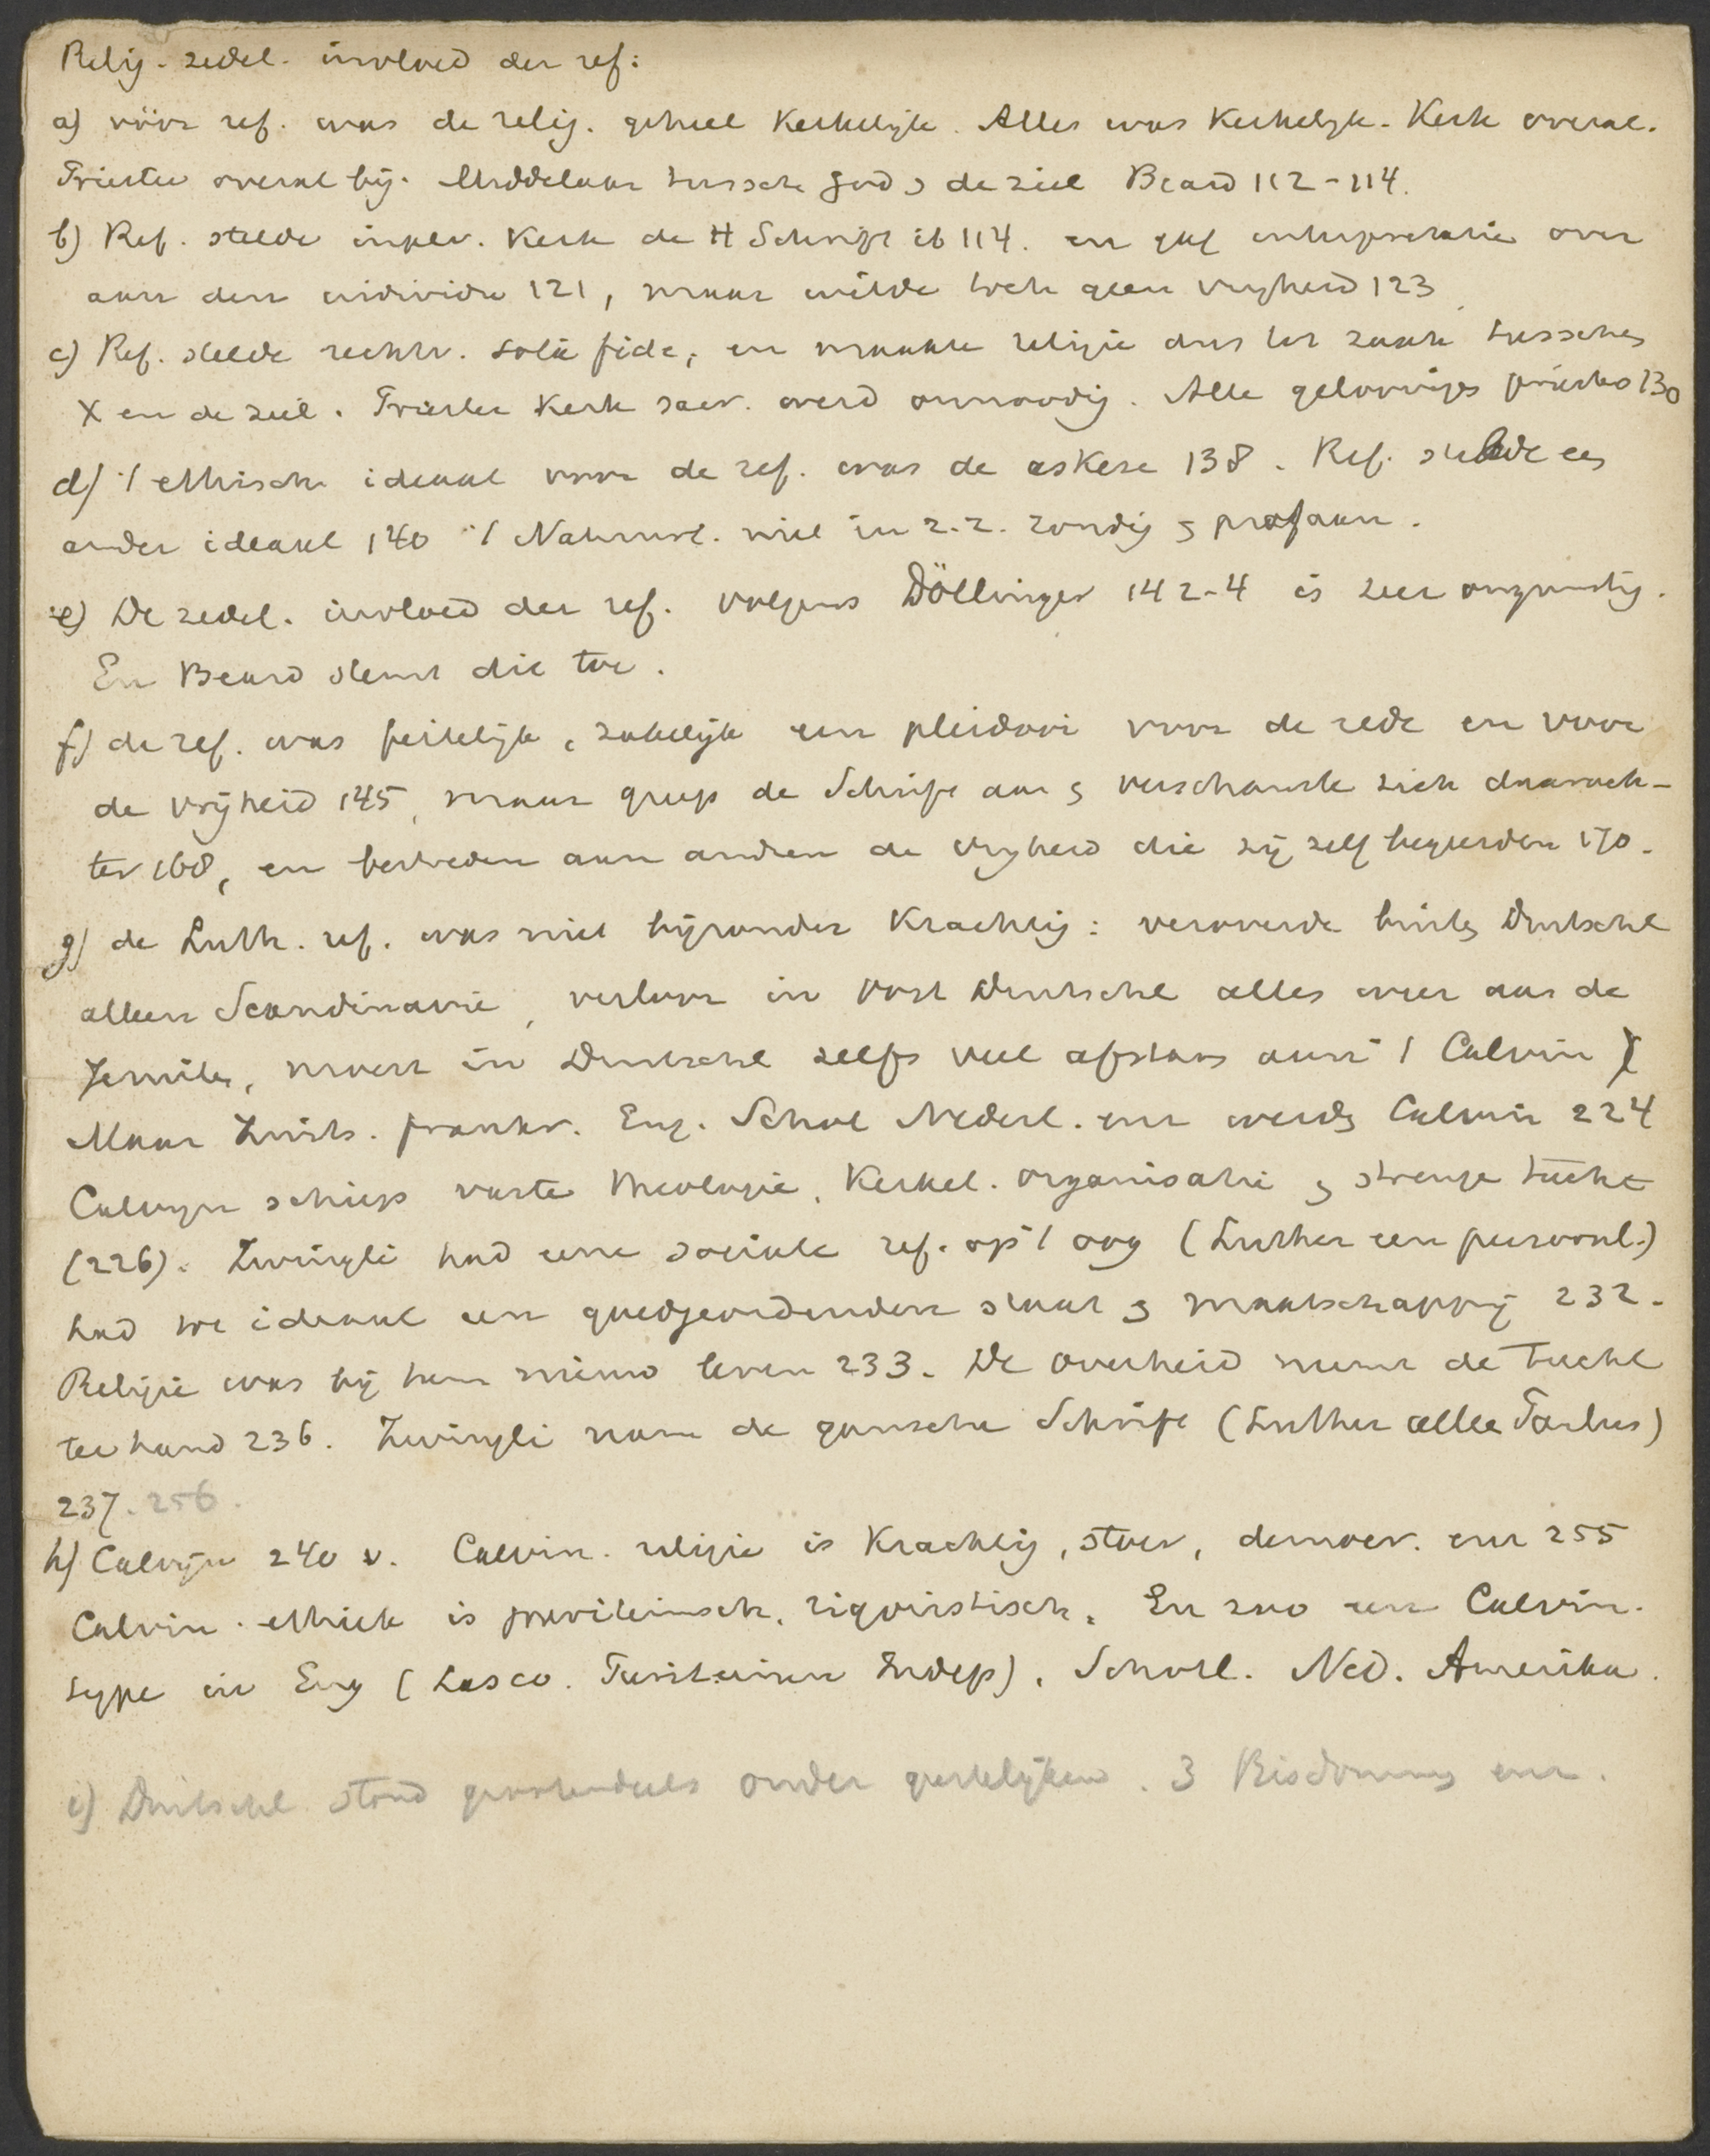 Relig. zedel. invloed der ref:
a) vóór ref. was de relig. geheel kerkelijk. Alles was kerkelijk. Kerk overal.
Priester overal bij. Middelaar tussche God & de ziel Beard 112-114.
b) Ref. stelde in pl. v. Kerk de H Schrift ib 114. en gaf interpretatie over
aan den individu 121, maar wilde toch geen vrijheid 123
c) Ref. stelde rechtv. sola fide, en maakte religie dus tot zaak tusschen
X en de ziel. Priester Kerk sacr. werd onnoodig. Alle geloovigen priesters 130
d) 't ethische ideaal voor de ref. was de askese 138. Ref. stelde een
ander ideaal 140 't Natuurl. niet in z.z. zondig & profaan.
e) De zedel. invloed der ref. volgens Döllinger 142-4 is zeer ongunstig.
En Beard stemt die toe.
f) de ref. was feitelijk, zakelijk een pleidooi voor de rede en voor
de vrijheid 145, maar greep de Schrift aan & verschanste zich daarach-
ter 168, en betwisten aan andren de vrijheid die zij zelf begeerden 170.
g) de Luth. ref. was niet bijzonder krachtig: veroverde buiten Duitschl
alleen Scandinavie, verloor in Oost Duitschl alles weer aan de
Jezuiten, moest in Duitschl zelfs veel afstaan aan 't Calvin
Maar Zwits. frankr. Eng. Schotl Nederl. enz werden Calvin 224
Calvijn schiep vaste theologie, Kerkel. organisatie & strenge tucht
(226). Zwingli had eene sociale ref. op 't oog (Luther een persoonl.)
had tot ideaal een goedgeordenden staat & maatschappij 232.
Religie was bij hem nieuw leven 233. De overheid neemt de tucht
ter hand 236. Zwingli nam de gansche Schrift (Luther alleen Paulus)
237. 256.
h) Calvijn 240 v. Calvin. religie is krachtig, stoer, democr. enz 255
Calvin. ethiek is puriteinsch, rigoristisch. En zoo een Calvin.
type in Eng (Lasco. Puriteinen Indep), Schotl. Ned. Amerika.
i) Duitschl stond grootendeels onder geestelijken. 3 Bisdommen enz.